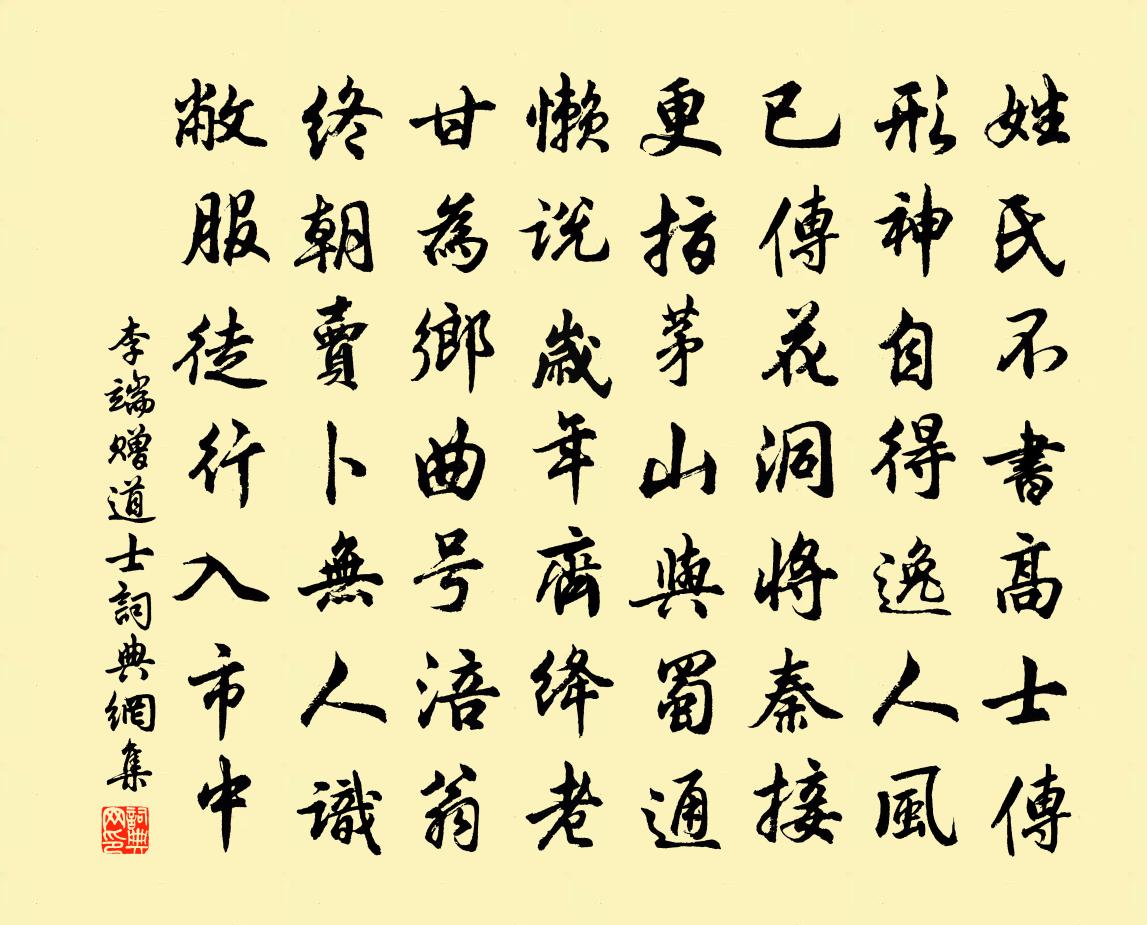 姓氏不書高士傳
形神自得逸人風
已傳花洞將秦接
更指茅山與蜀通
懶説歲年齊絳老
甘為鄉曲号涪翁
終朝賣卜無人識
敝服徒行入市中
李端贈道士詞典網集
詞典网印